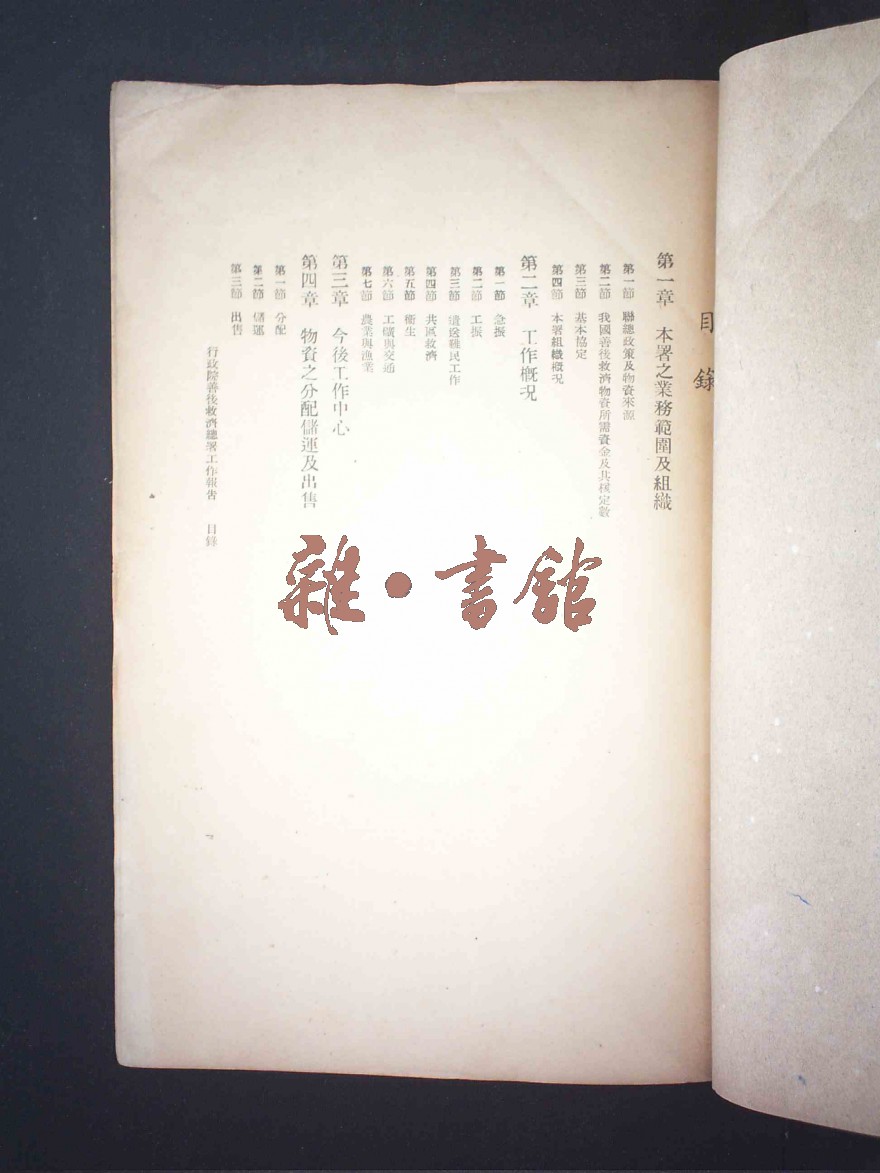 目錄
第一章 本署之業務範圍及組織
第一節 聯總政策及物資來源
第二節 我國善後救濟物資所需資金及其核定數
第三節 基本協定
第四節 本署組織概況
第二章 工作概況
第一節 急振
第二節 工振
第三節 遣送難民工作
第四節 共區救濟
第五節 衞生
第六節 工礦與交通
第七節 農業與漁業
第三章 今後工作中心
第四章 物資之分配儲運及出售
第一節 分配
第二節 儲運
第三節 出售
行政院善後救濟總署工作報告 目錄
雜·書館